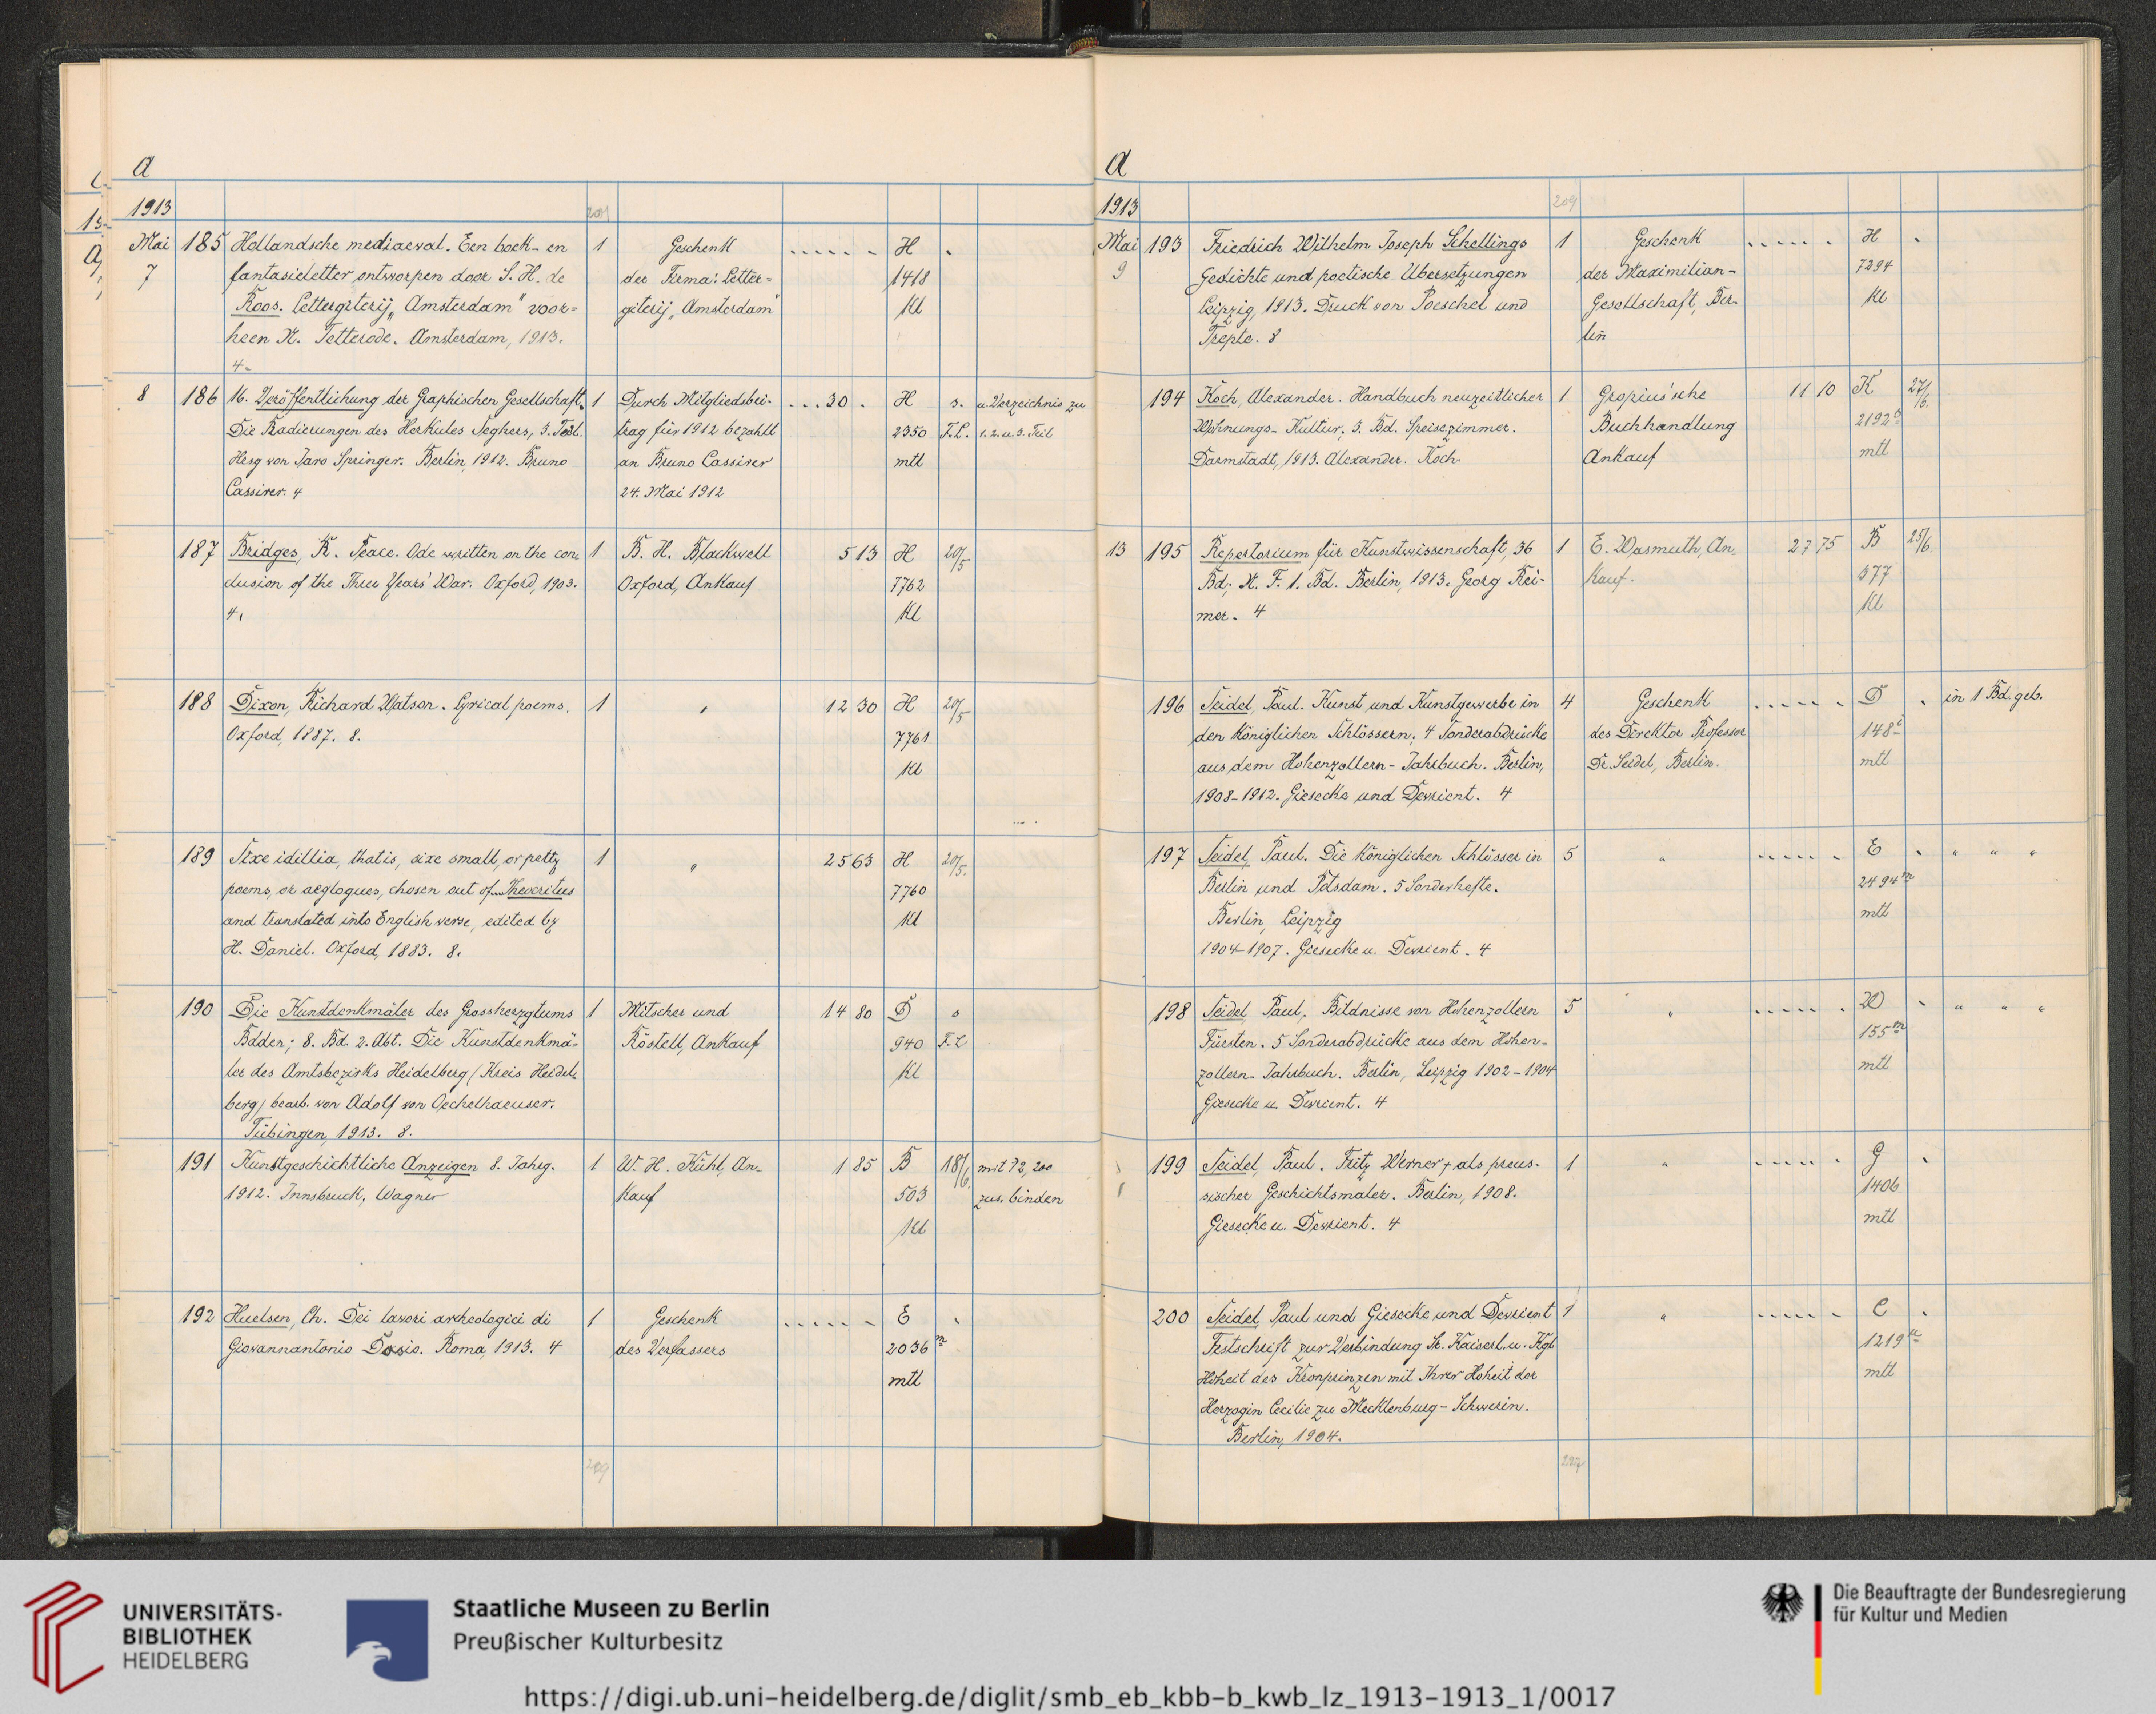 a
1913
209
Mai 185 Hollandsche mediaeval. Een boek- en 1 Geschenk H
7 fantasieletter ontworpen door S. H. de der Firma: Letter= 1418
Roos. Lettergiterij „Amsterdam" voor= giterij „Amsterdam" Kl
heen N. Tetterode. Amsterdam, 1913.
4.
8 186 16. Veröffentlichung der Graphischen Gesellschaft. 1 Durch Mitgliedsbei- 30. H s. u. Verzeichnis zu
Die Radierungen des Herkules Seghers, 3. Teil. trag für 1912 bezahlt 2350 F.L. 1. 2. u. 3. Teil
Hrsg von Jaro Springer. Berlin, 1912. Bruno an Bruno Cassirer mtl
Cassirer. 4 24. Mai 1912
187 Bridges, R. Peace. Ode written on the con- 1 B. H. Blackwell 5 13 H 20/5
clusion of the Three Years' War. Oxford, 1903. Oxford, Ankauf 7762
4. Kl
188 Dixon, Richard Watson. Lyrical poems. 1 " 12 30 H 20/5
Oxford, 1887. 8. 7761
Kl
189 Sixe idillia, that is, sixe small, or petty 1 " 25 63 H 20/5.
poems, or aeglogues, chosen out of... Theocritus 7760
and translated into English verse, edited by Kl
H. Daniel. Oxford, 1883. 8.
190 Die Kunstdenkmäler des Grossherzgtums 1 Mitscher und 14 80 D s
Baden; 8. Bd. 2. Abt. Die Kunstdenkmä- Röstell, Ankauf 940 F.L
ler des Amtsbezirks Heidelberg (Kreis Heidel- Kl
berg) bearb. von Adolf von Oechelhaeuser.
Tübingen, 1913. 8.
191 Kunstgeschichtliche Anzeigen 8. Jahrg. 1 W. H. Kühl, An- 1 85 B 18/6. mit 13, 200
1912. Innsbruck, Wagner kauf 503 zus. binden
Kl
192 Huelsen, Ch. Dei lavori archeologici di 1 Geschenk E
Giovannantonio Dosio. Roma, 1913. 4 des Verfassers 2036 m
mtl
209
a
1913
209
Mai 193 Friedrich Wilhelm Joseph Schellings 1 Geschenk H
9 Gedichte und poetische Übersetzungen der Maximilian- 7294
Leipzig, 1913. Druck von Poeschel und Gesellschaft, Ber- Kl
Trepte. 8 lin
194 Koch, Alexander. Handbuch neuzeitlicher 1 Gropius'sche 11 10 K 27/6.
Wohnungs-Kultur; 3. Bd. Speisezimmer. Buchhandlung 2192 b
Darmstadt, 1913. Alexander. Koch. Ankauf mtl
13 195 Repertorium für Kunstwissenschaft, 36 1 E. Wasmuth, An- 27 75 B 25/6
Bd; N. F. 1. Bd. Berlin, 1913. Georg Rei- kauf. 377
mer. 4 Kl
196 Seidel, Paul. Kunst und Kunstgewerbe in 4 Geschenk D in 1 Bd. geb.
den Königlichen Schlössern; 4 Sonderabdrücke des Direktor Professor 148 i
aus dem Hohenzollern-Jahrbuch. Berlin, Dr. Seidel, Berlin. mtl
1908-1912. Giesecke und Devrient. 4
197 Seidel, Paul. Die Königlichen Schlösser in 5 " E " " "
Berlin und Potsdam. 5 Sonderhefte. 2494 m
Berlin, Leipzig mtl
1904-1907. Giesecke u. Devrient. 4
198 Seidel, Paul. Bildnisse von Hohenzollern 5 " W " " "
Fürsten. 5 Sonderabdrücke aus dem Hohen- 155 m
zollern-Jahrbuch. Berlin, Leipzig 1902-1904 mtl
Giesecke u. Devrient. 4
199 Seidel, Paul. Fritz Werner + als preus- 1 " G
sischer Geschichtsmaler. Berlin, 1908. 1406
Giesecke u. Devrient. 4 mtl
200 Seidel, Paul und Giesecke und Devrient 1 " C
Festschrift zur Verbindung Sr. Kaiserl. u. Kgl. 1219
Hoheit des Kronprinzen mit Ihrer Hoheit der mtl
Herzogin Cecilie zu Mecklenburg-Schwerin.
Berlin, 1904.
UNIVERSITÄTS-
BIBLIOTHEK
HEIDELBERG
Staatliche Museen zu Berlin
Preußischer Kulturbesitz
Die Beauftragte der Bundesregierung
für Kultur und Medien
https://digi.ub.uni-heidelberg.de/diglit/smb_eb_kbb-b_kwb_lz_1913-1913_1/0017